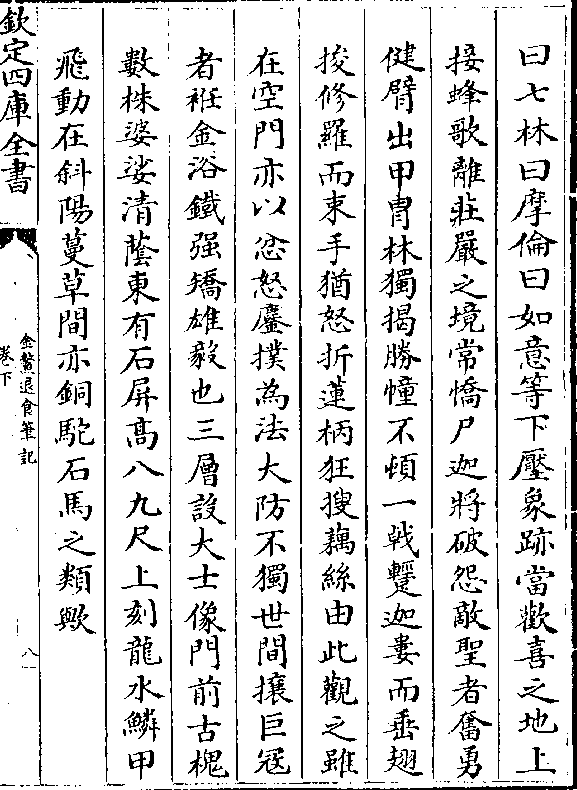 曰七林曰摩倫曰如意等下壓象跡當歡喜之地上
接蜂歌離莊嚴之境常憍尸迦將破怨敵聖者奮勇
健臂出甲胄林獨揭勝幢不頓一戟躄迦婁而垂翅
捘修羅而束手猶怒折蓮柄狂搜藕絲由此觀之雖
在空門亦以忿怒鏖撲為法大防不獨世間攘巨冦
者袵金浴鐵强矯雄毅也三層設大士像門前古槐
數株婆娑清蔭東有石屏高八九尺上刻龍水鱗甲
飛動在斜陽蔓草間亦銅駝石馬之類歟
欽定四庫全書
金鰲退食筆記
卷下
八